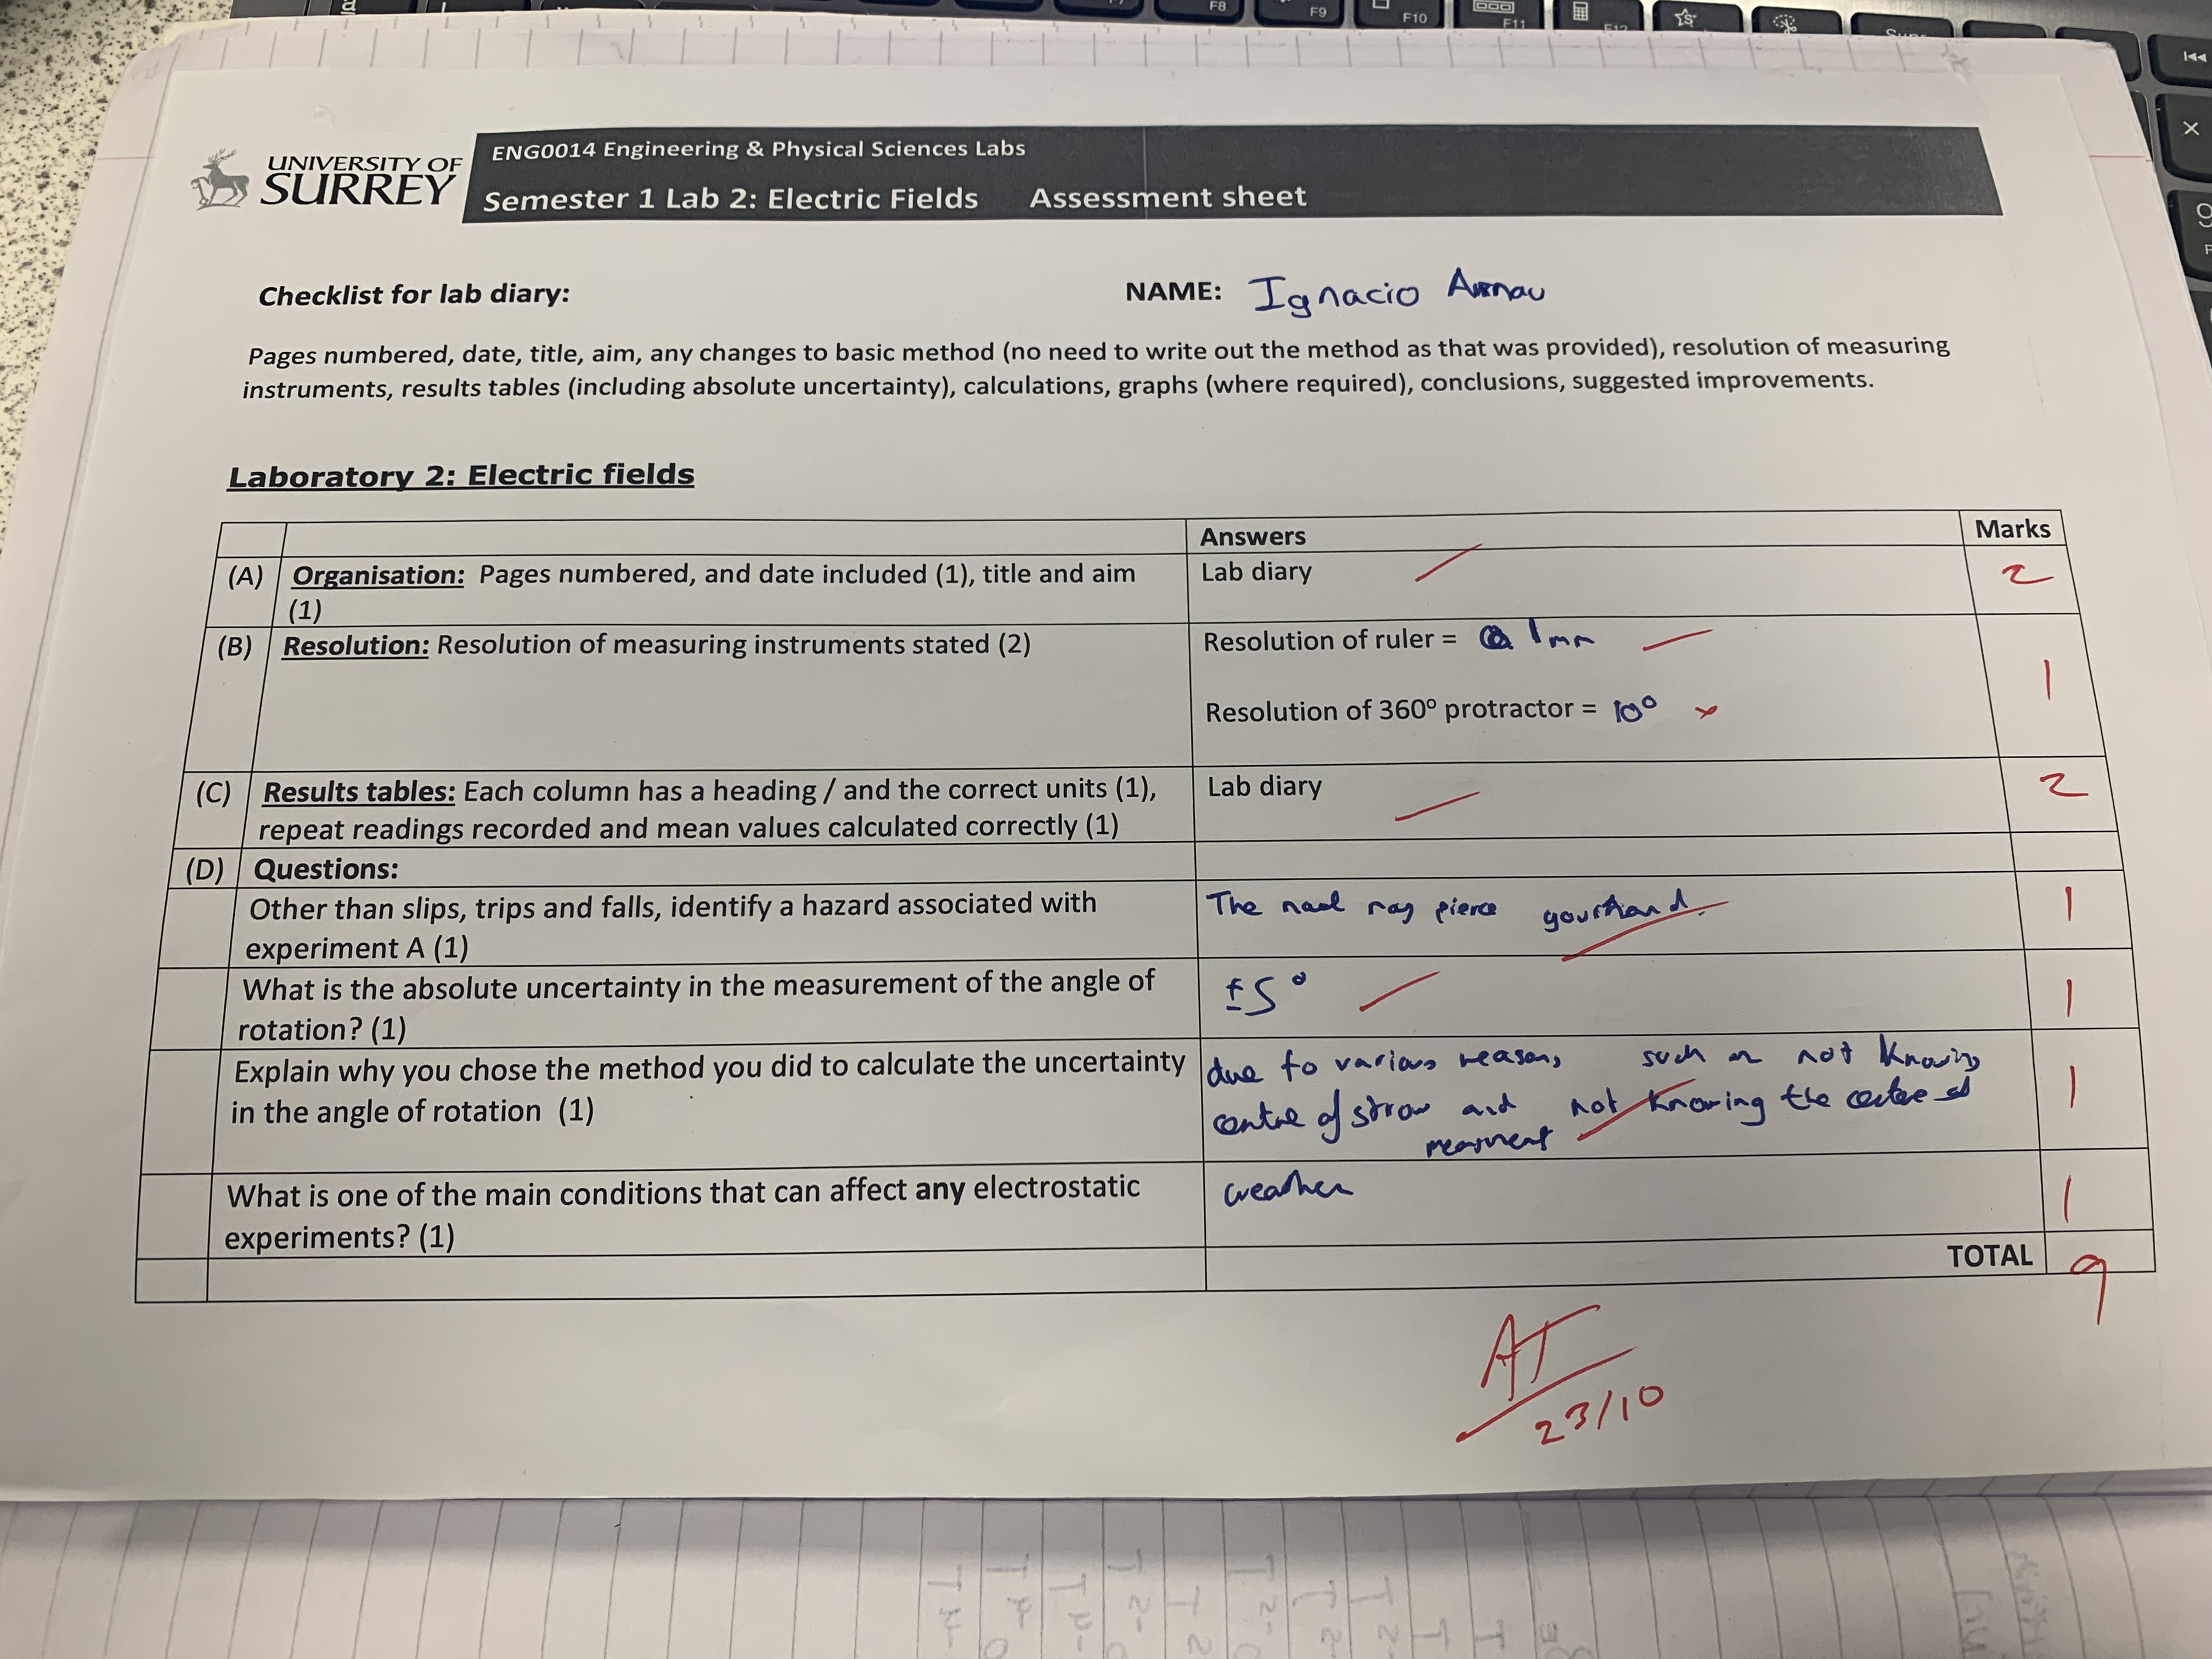 UNIVERSITY OF
SURREY
ENG0014 Engineering & Physical Sciences Labs
Semester 1 Lab 2: Electric Fields Assessment sheet
Checklist for lab diary:
NAME: Ignacio Arnau
Pages numbered, date, title, aim, any changes to basic method (no need to write out the method as that was provided), resolution of measuring
instruments, results tables (including absolute uncertainty), calculations, graphs (where required), conclusions, suggested improvements.
Laboratory 2: Electric fields
Answers Marks
(A) Organisation: Pages numbered, and date included (1), title and aim
(1)
Lab diary
2
(B) Resolution: Resolution of measuring instruments stated (2)
Resolution of ruler = 1mm
Resolution of 360º protractor = 10º
1
(C) Results tables: Each column has a heading / and the correct units (1),
repeat readings recorded and mean values calculated correctly (1)
Lab diary
2
(D) Questions:
Other than slips, trips and falls, identify a hazard associated with
experiment A (1)
The may pierce your hand.
1
What is the absolute uncertainty in the measurement of the angle of
rotation? (1)
±5º
1
Explain why you chose the method you did to calculate the uncertainty
in the angle of rotation (1)
due to various reasons such as not knowing
centre of straw and not knowing the
1
What is one of the main conditions that can affect any electrostatic
experiments? (1)
weather
1
TOTAL
9
AT
23/10
F8
F9
F10
F11